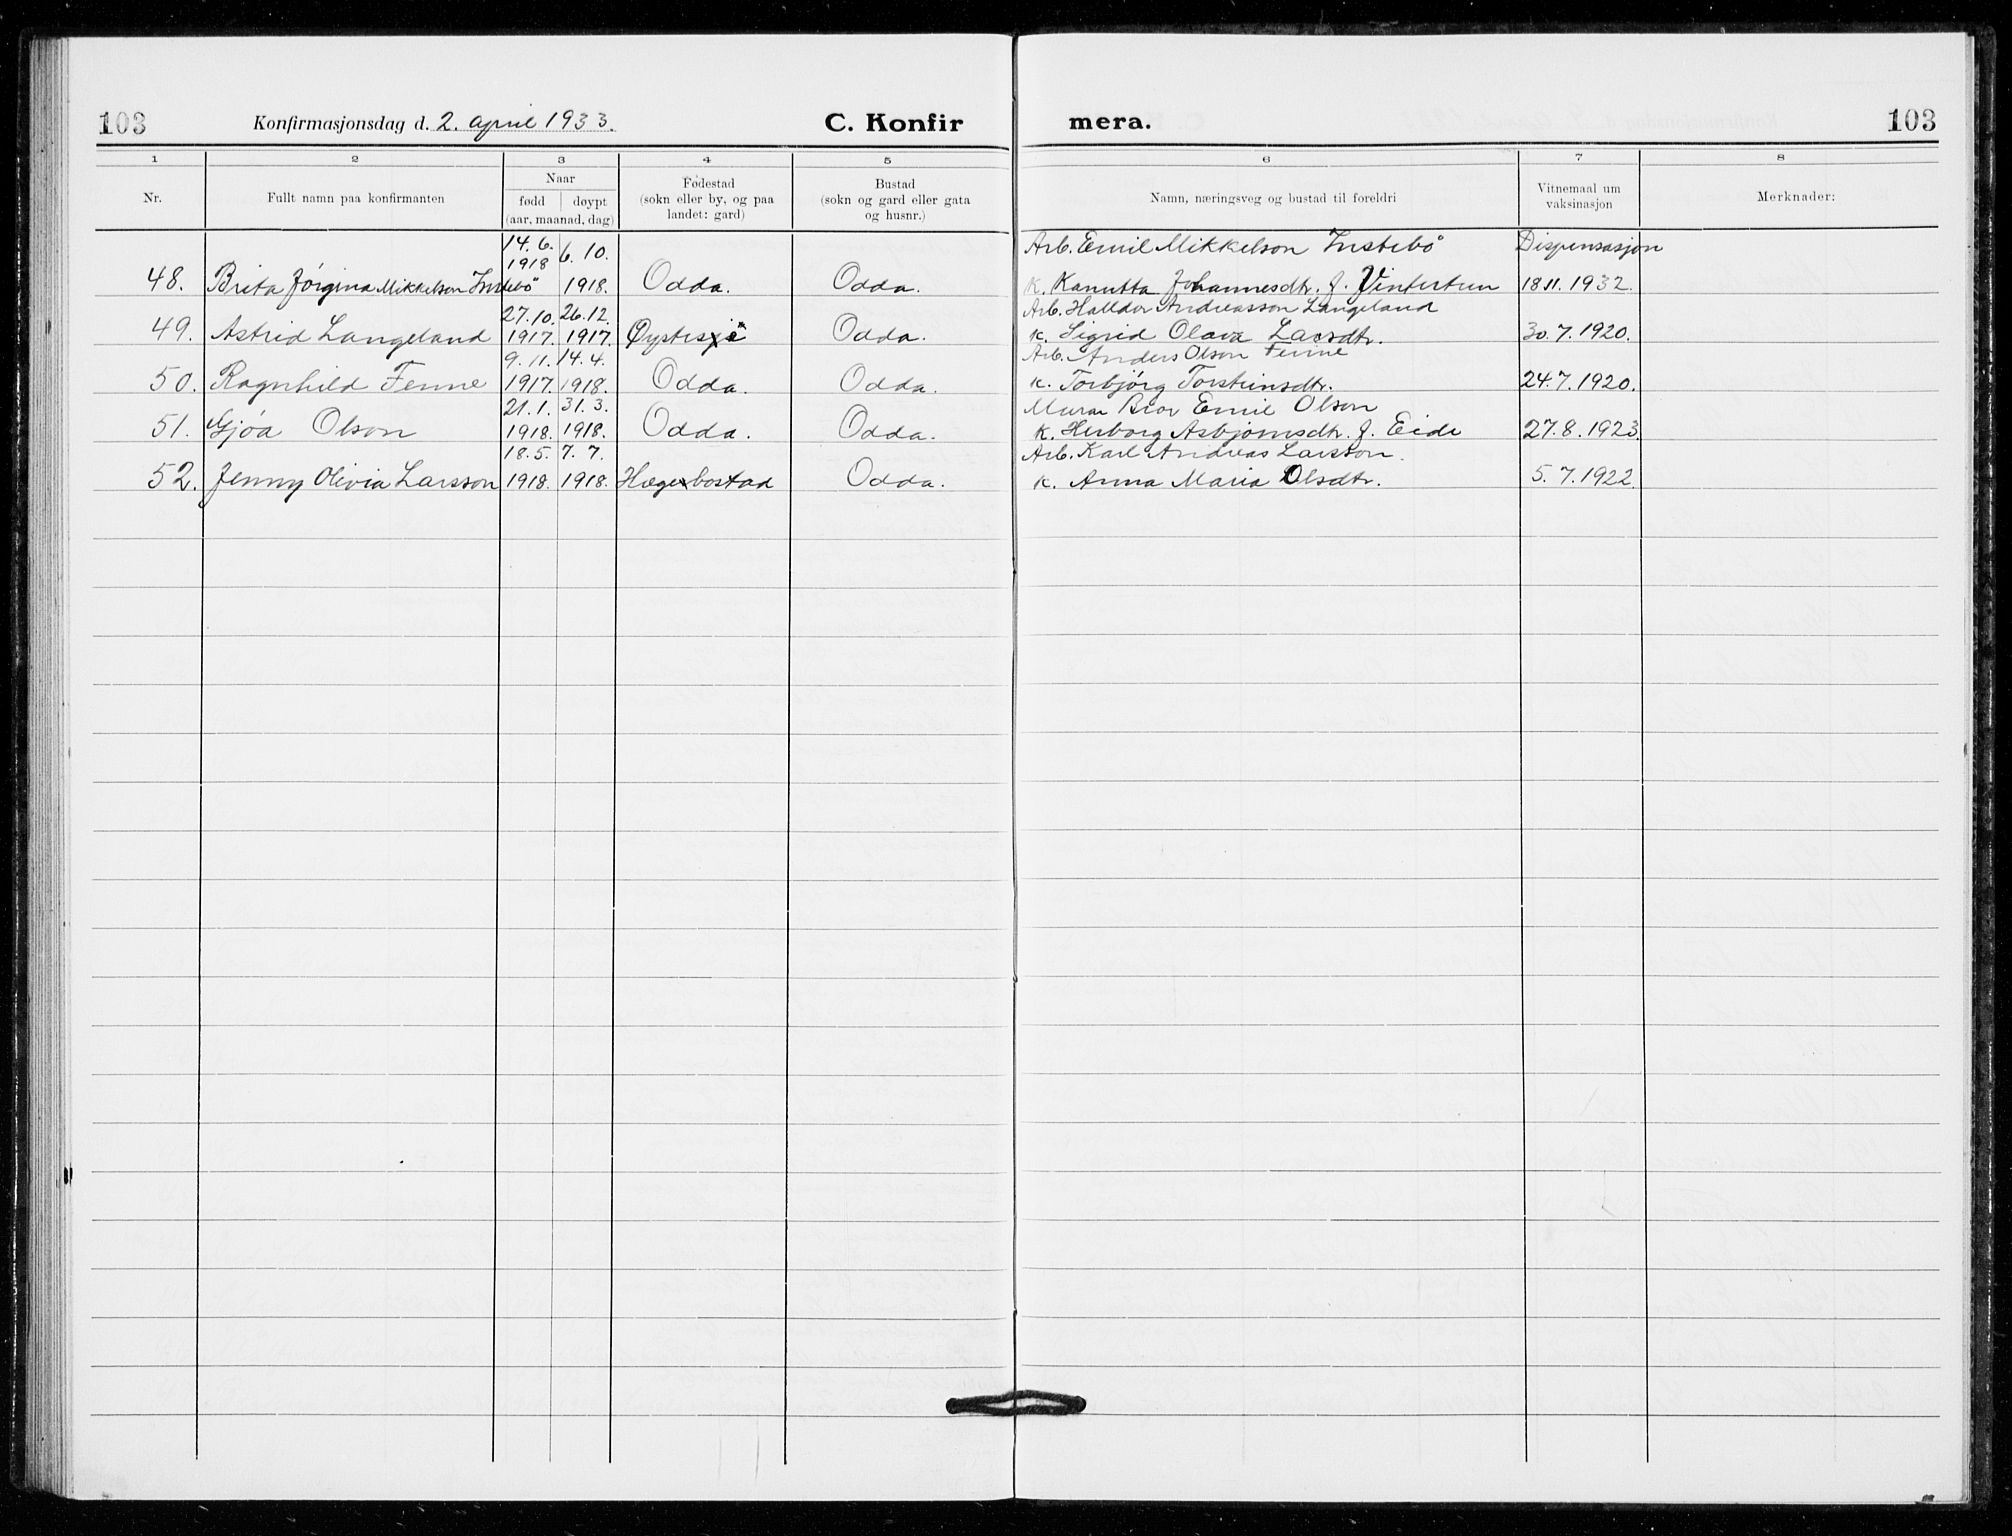 103 Konfirmasjonsdag d. 2. april 1933. C. Konfir mera. 103
1 2 3 4 5 6 7 8
Nr. Fullt namn paa konfirmanten
Naar
fødd døypt
(aar, maanad, dag)
Fødestad
(sokn eller by, og paa
landet: gard)
Bustad
(sokn og gard eller gata
og husnr.)
Namn, næringsveg og bustad til foreldri
Vitnemaal um
vaksinasjon
Merknader:
14. 6. 6. 10. Arb. Emil Mikkelson Instebö Dispensasjon
48. Brita Jórgina Mikkelson Instebö 1918 1918. Odda. Odda. K. Kanutta Johannesdtr. f. Vintertun 18 11. 1932.
27. 10. 26. 12. Arb. Halldor Andreasson Langeland
49. Astrid Langeland 1917. 1917. Odda. K. Sigrid Olava Larsdtr. 30. 7. 1920.
9. 11. 14. 4. Arb. Anders Olson Fenne
50. Ragnhild Fenne 1917. 1918. Odda. Odda. K. Torbjórg Torsteinsdtr. 24. 7. 1920.
21. 1. 31. 3. Murar Bror Emil Olson
51. Gjóa Olson 1918. 1918. Odda. Odda. K. Herborg Asbjórnsdtr. f. Eide 27. 8. 1923.
18. 5. 7. 7. Arb. Karl Andreas Larsson.
52. Jenny Olivia Larsson 1918. 1918. Hægebostad Odda. K. Anna Maria Olsdtr. 5. 7. 1922.